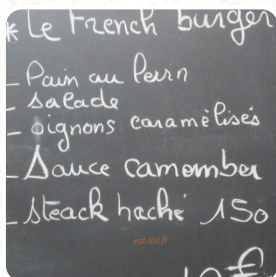 * Le French burger
- Pain au levin
- Salade
- oignons caramélisés
- Sauce camember
- Steack haché 150
eat-list.fr
10€